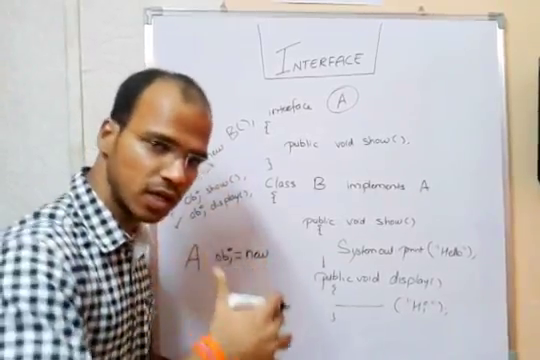 INTERFACE
interface A
{
public void show();
}
Class B implements A
{
public void show()
{
System.out.print("Hello");
}
public void display()
{
("Hi");
}
new B();
obj.show();
✓ obj.display();
A obj = new